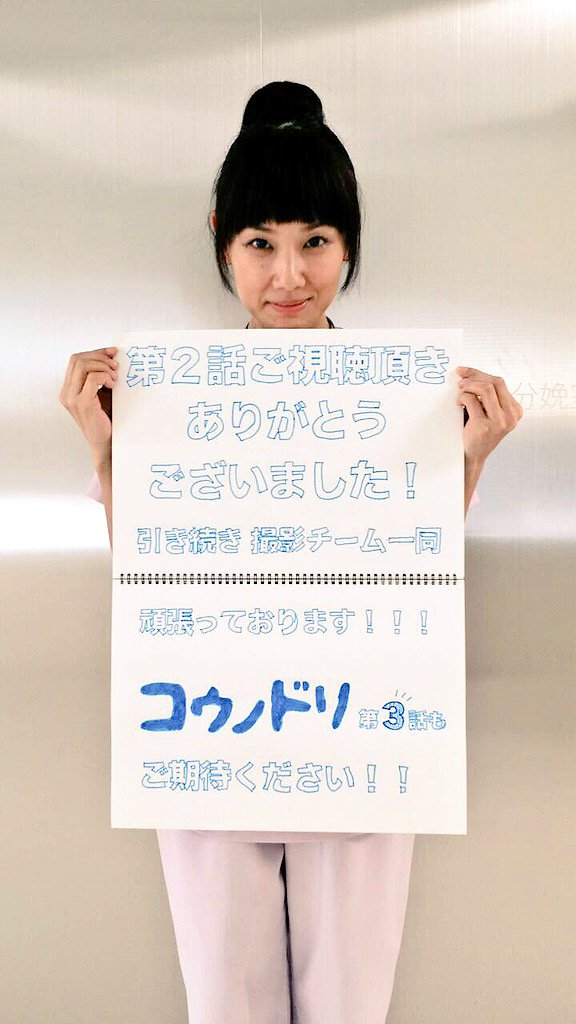 第2話ご視聴頂き
ありがとう
ございました！
引き続き 撮影チーム一同
頑張っております！！！
コウノドリ 第3話も
ご期待ください！！
分娩